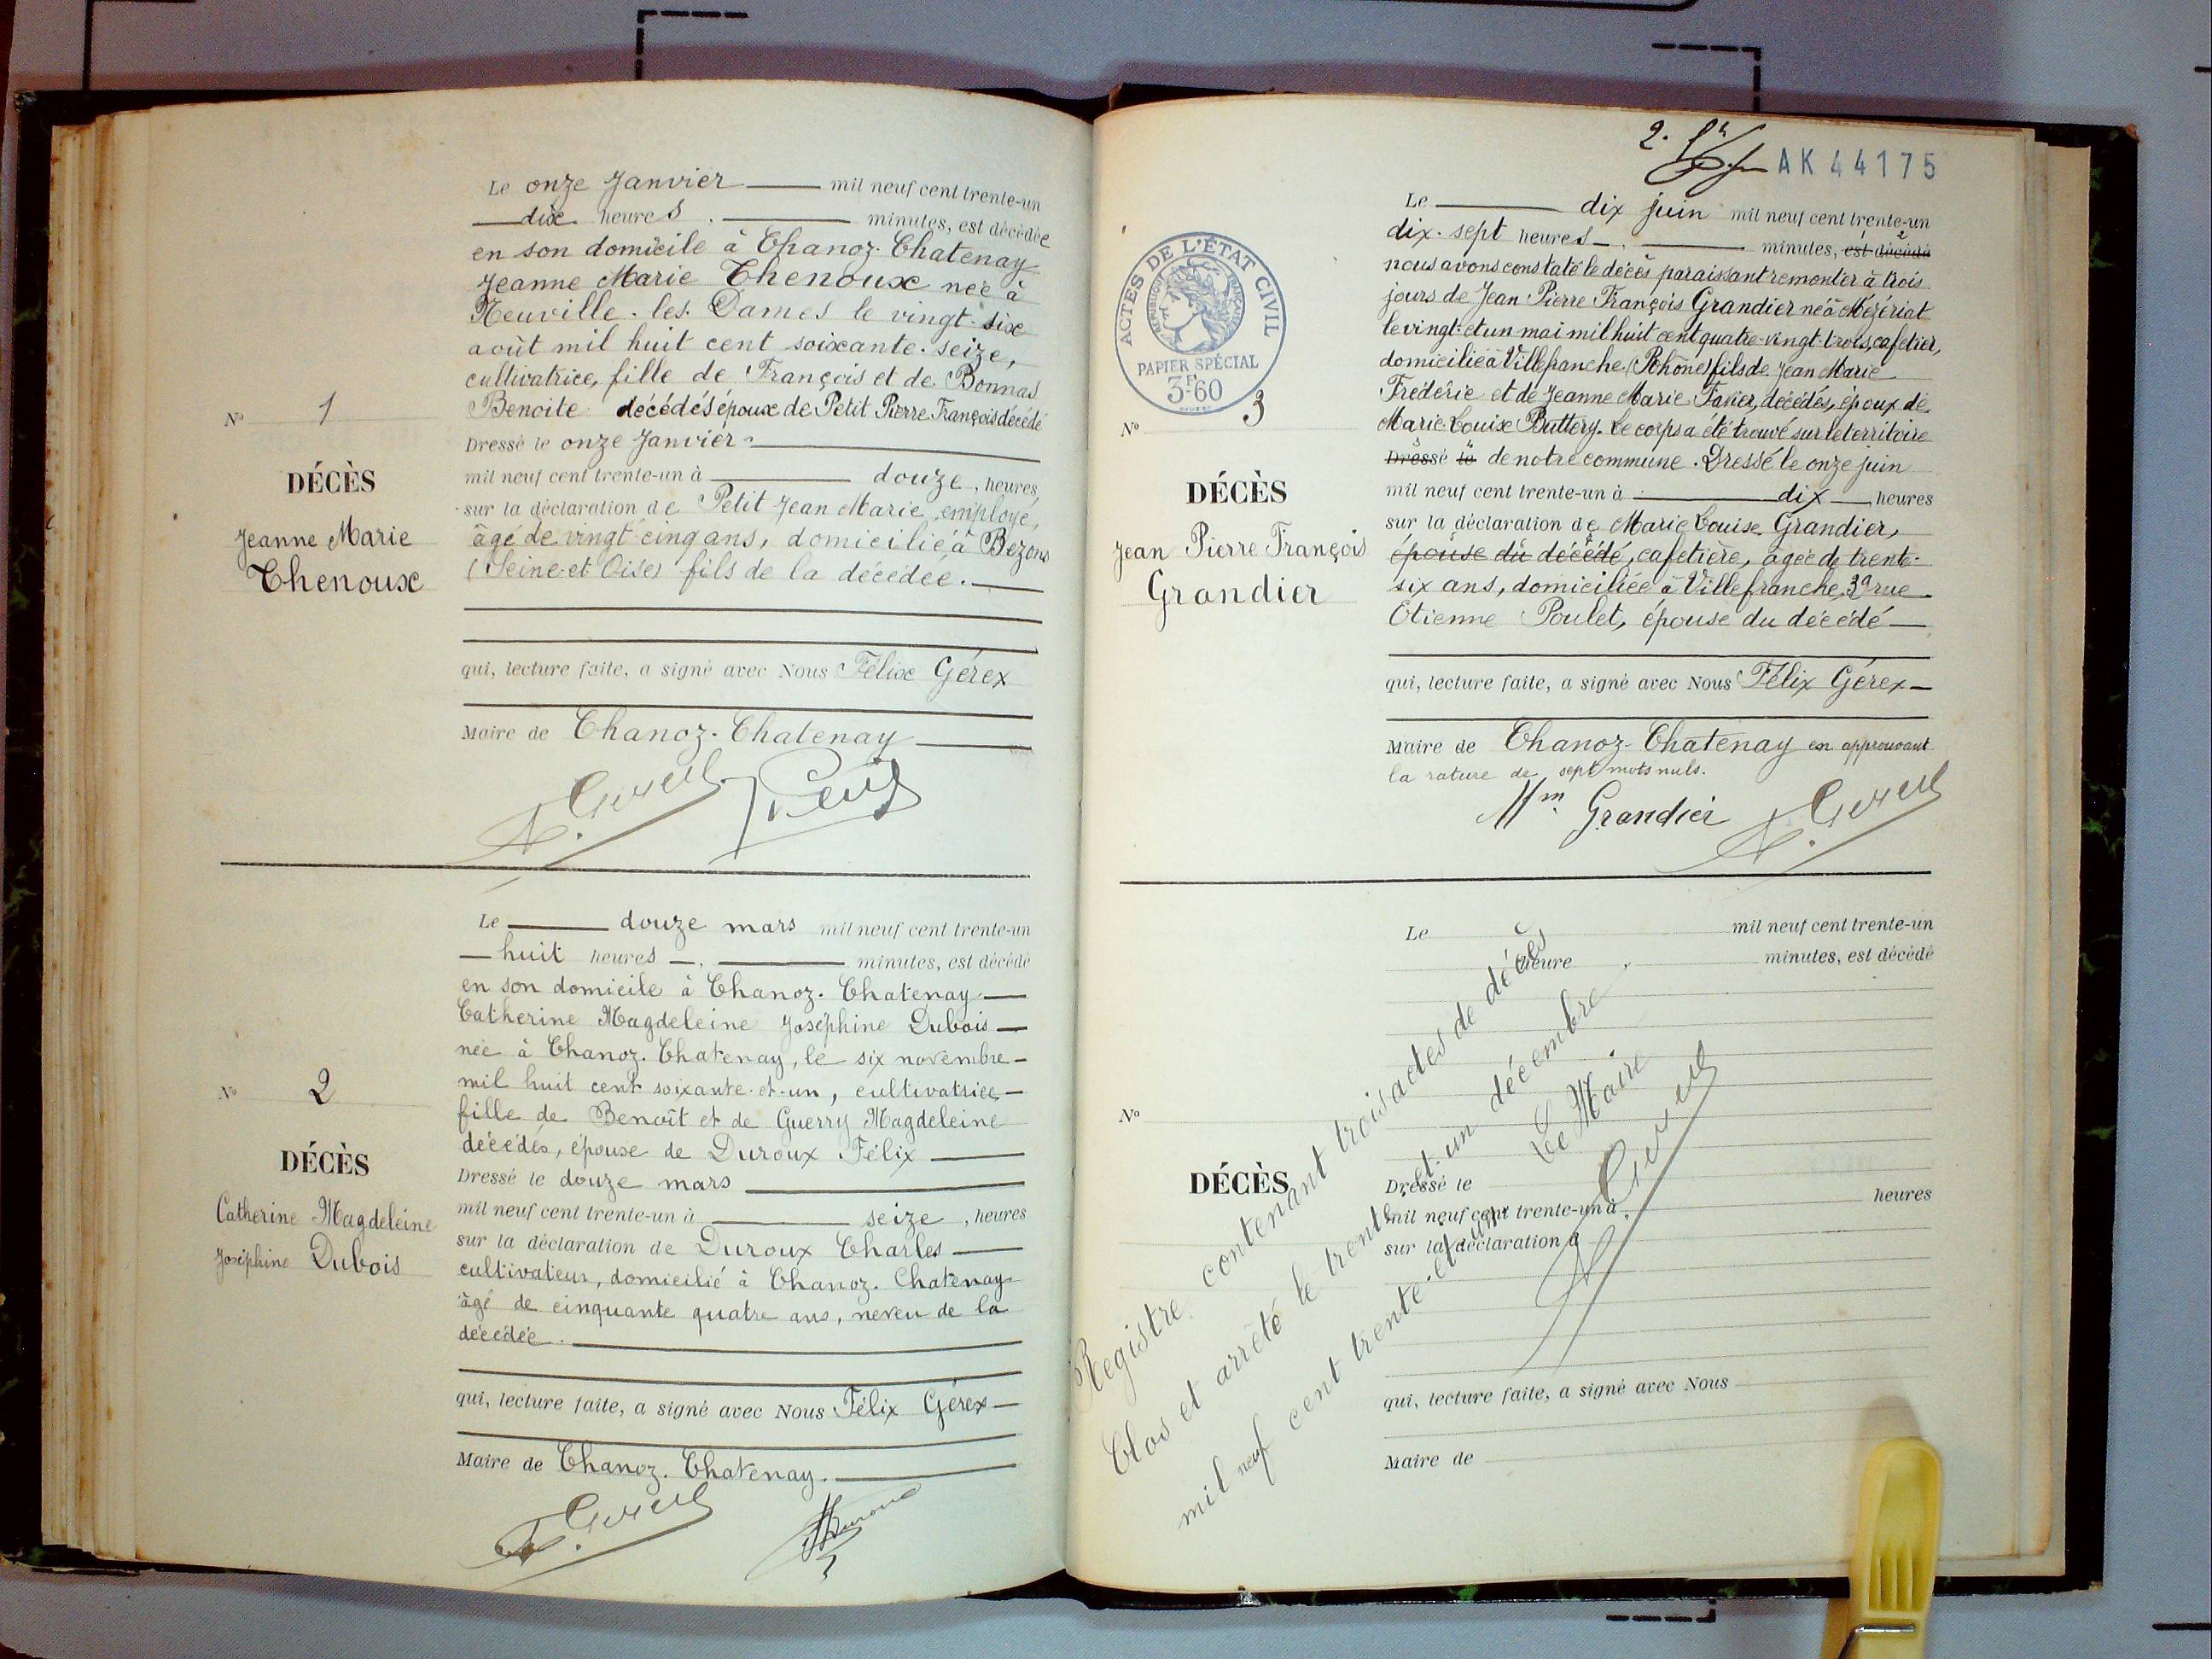 Le onze Janvier mil neuf cent trente-un
dix heures . minutes, est décédée
en son domicile à Chanoz-Chatenay
Jeanne Marie Thenoux née à
Neuville-les-Dames le vingt-six
août mil huit cent soixante-seize,
cultivatrice, fille de François et de Bonnas
Benoite décédés épouse de Petit Pierre François décédé
Dressé le onze Janvier
mil neuf cent trente-un à douze, heures,
sur la déclaration de Petit Jean Marie, employé,
âgé de vingt-cinq ans, domicilié à Bezons
(Seine-et-Oise) fils de la décédée.
qui, lecture faite, a signé avec Nous Félix Gérex
Maire de Chanoz-Chatenay
F. Gérex Petit
N° 1
DÉCÈS
Jeanne Marie
Thenoux
Le douze mars mil neuf cent trente-un
huit heures . minutes, est décédé
en son domicile à Chanoz-Chatenay
Catherine Magdeleine Joséphine Dubois
née à Chanoz-Chatenay, le six novembre
mil huit cent soixante-et-un, cultivatrice
fille de Benoît et de Guerry Magdeleine
décédés, épouse de Duroux Félix
Dressé le douze mars
mil neuf cent trente-un à seize, heures
sur la déclaration de Duroux Charles
cultivateur, domicilié à Chanoz-Chatenay
âgé de cinquante quatre ans, neveu de la
décédée.
qui, lecture faite, a signé avec Nous Félix Gérex
Maire de Chanoz-Chatenay.
F. Gérex Duroux
N° 2
DÉCÈS
Catherine Magdeleine
Joséphine Dubois
2.
AK 44175
ACTES DE L'ÉTAT CIVIL
RÉPUBLIQUE FRANÇAISE
PAPIER SPÉCIAL
3F60
Le dix juin mil neuf cent trente-un
dix-sept heures . minutes, est décédé 2
nous avons constaté le décès paraissant remonter à trois
jours de Jean Pierre François Grandier né à Mézériat
le vingt-et un mai mil huit cent quatre-vingt-trois, cafetier,
domicilié à Villefranche (Rhône) fils de Jean Marie
Frédéric et de Jeanne Marie Favier, décédés, époux de
Marie Louise Buttery. Le corps a été trouvé sur le territoire
Dressé le de notre commune. Dressé le onze juin
mil neuf cent trente-un à dix heures
sur la déclaration de Marie Louise Grandier,
épouse du décédé, cafetière, âgée de trente-
six ans, domiciliée à Villefranche, 39 rue
Etienne Poulet, épouse du décédé
qui, lecture faite, a signé avec Nous Félix Gérex
Maire de Chanoz-Chatenay en approuvant
la rature de sept mots nuls.
Mm Grandier F. Gérex
N° 3
DÉCÈS
Jean Pierre François
Grandier
Le mil neuf cent trente-un
heure , minutes, est décédé
N°
DÉCÈS
Dressé le
mil neuf cent trente-un à heures
sur la déclaration d
qui, lecture faite, a signé avec Nous
Maire de
Registre contenant trois actes de décès
Clos et arrêté le trente-et-un décembre
mil neuf cent trente-et-un.
Le Maire
F. Gérex